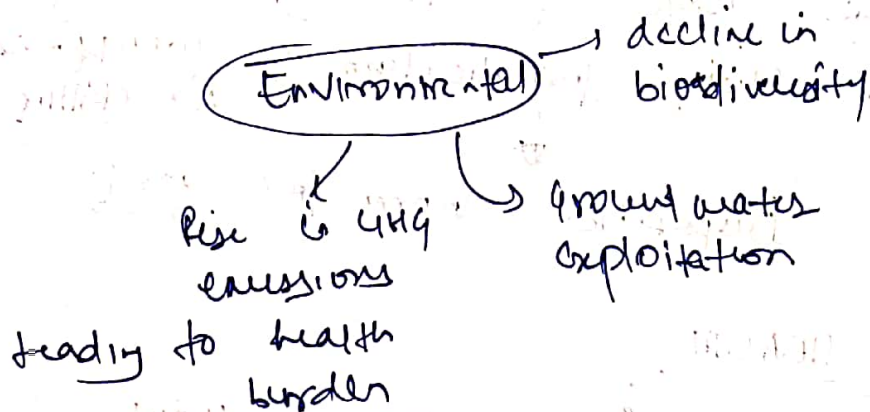 Environmental
decline in
biodiversity
Rise in GHG
emissions
leading to health
burden
Ground water
exploitation